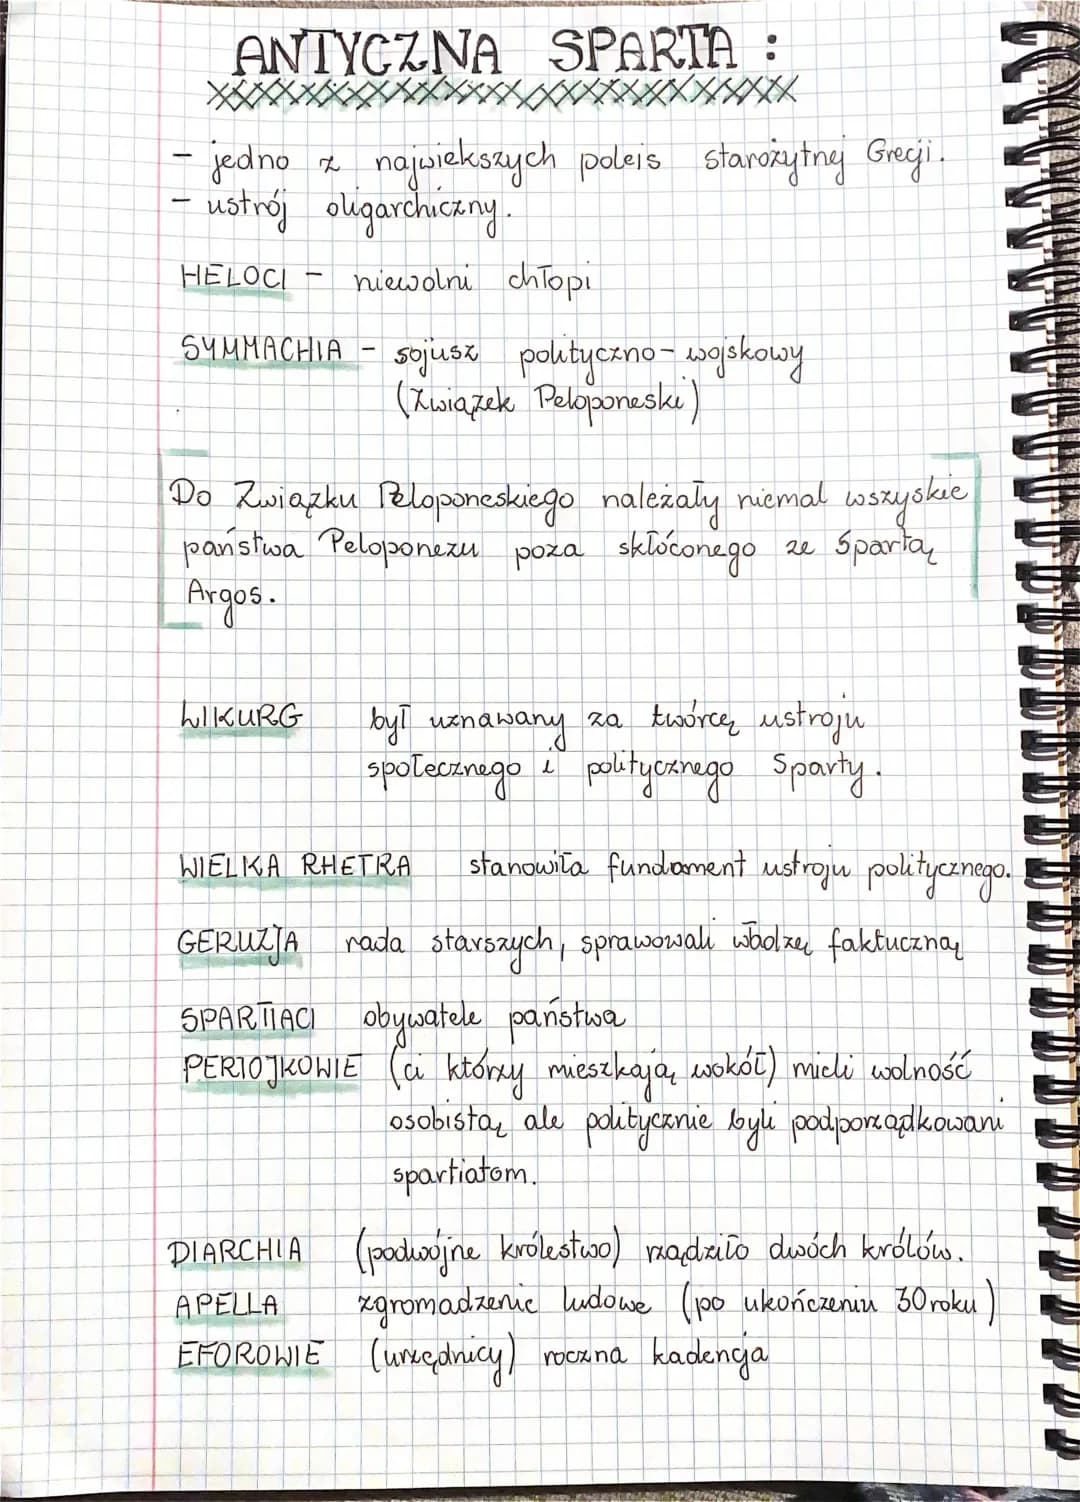 ANTYCZNA SPARTA :
- jedno z największych poleis starożytnej Grecji.
- ustrój oligarchiczny.
HELOCI - niewolni chłopi
SYMMACHIA - sojusz polityczno-wojskowy
(Związek Peloponeski)
Do Związku Peloponeskiego należały niemal wszyskie
państwa Peloponezu poza skłóconego ze Spartą
Argos.
LIKURG był uznawany za twórcę ustroju
społecznego i politycznego Sparty.
WIELKA RHETRA stanowiła fundament ustroju politycznego.
GERUZJA rada starszych, sprawowali władzę faktuczną
SPARTIACI obywatele państwa
PERIOJKOWIE (ci którzy mieszkają wokół) mieli wolność
osobistą ale politycznie byli podporządkowani
spartiatom.
DIARCHIA (podwójne królestwo) rządziło dwóch królów.
APELLA zgromadzenie ludowe (po ukończeniu 30 roku)
EFOROWIE (urzędnicy) roczna kadencja